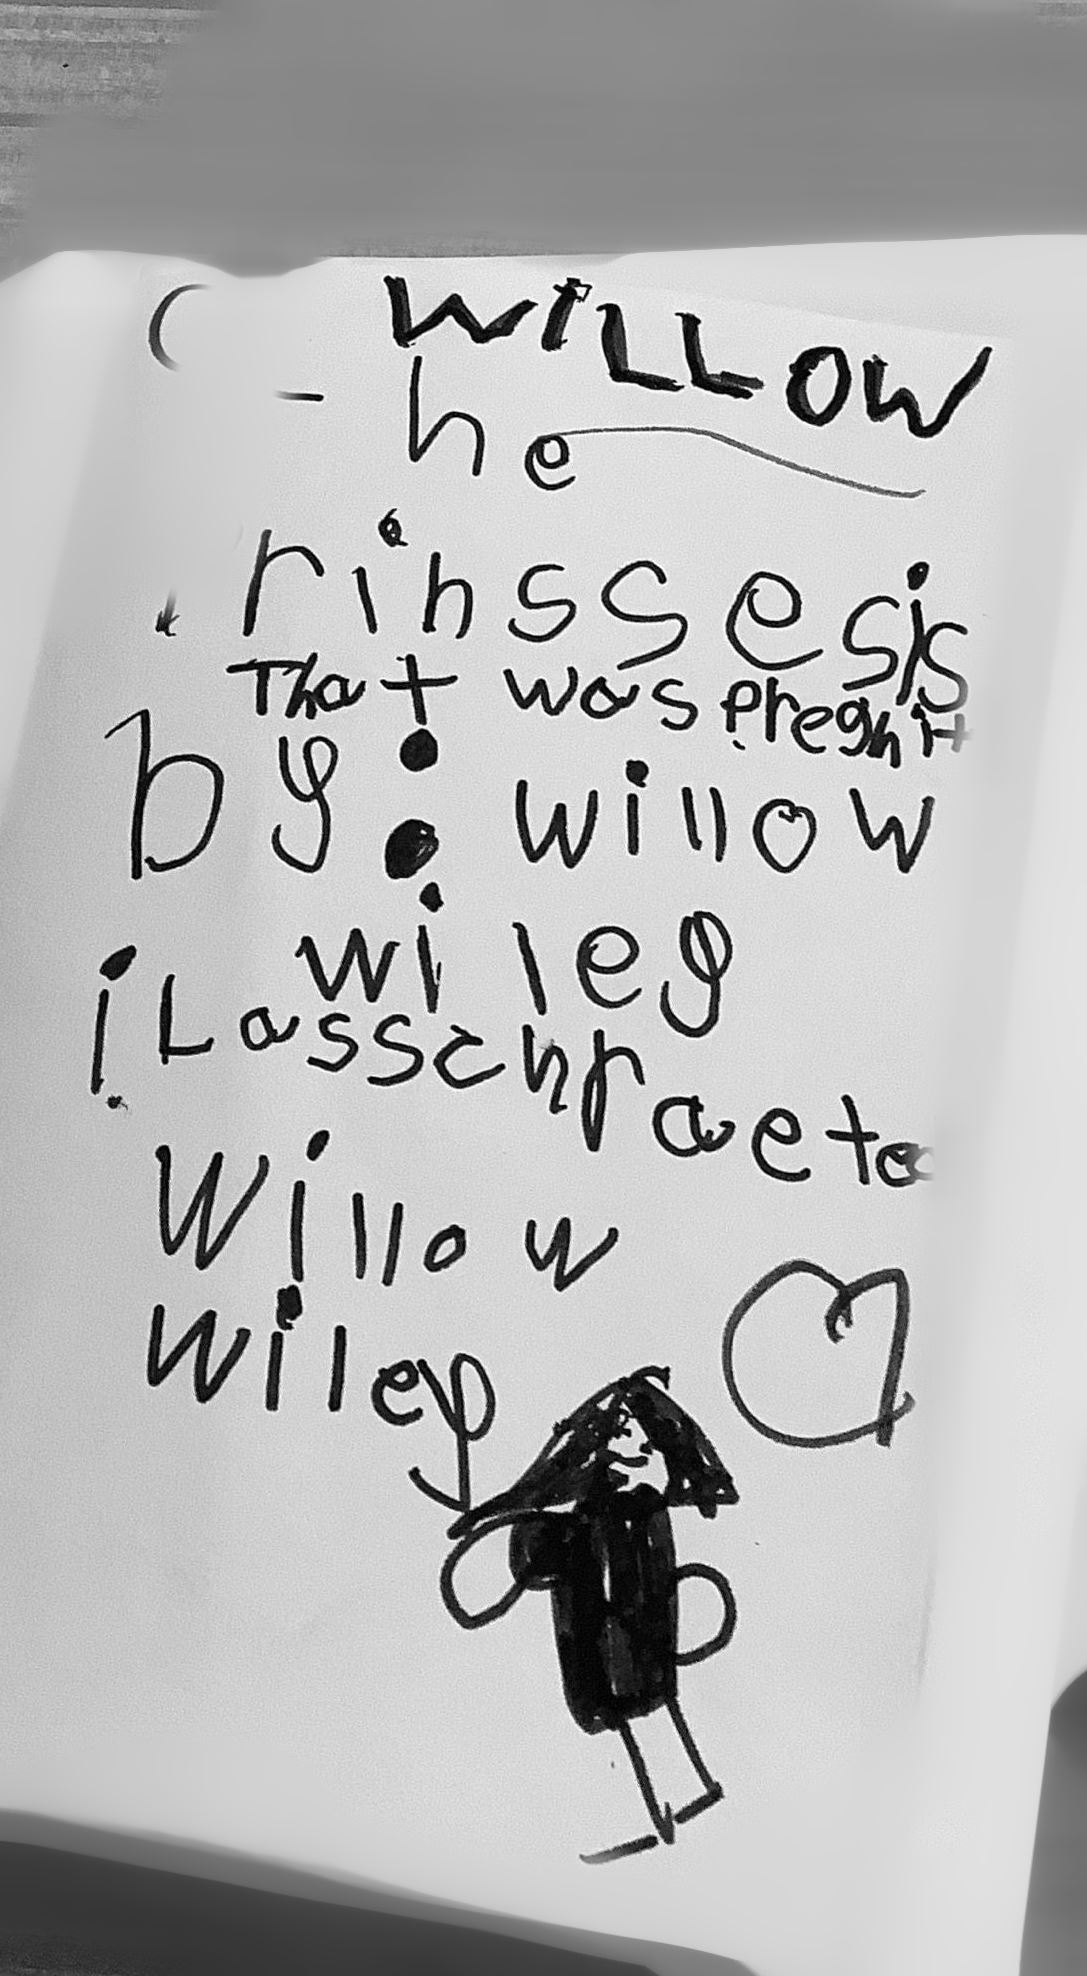 WiLLOW
he
rinssesis
That was pregnit
by: willow
wiley
iLasschraeted
Willow
wiley